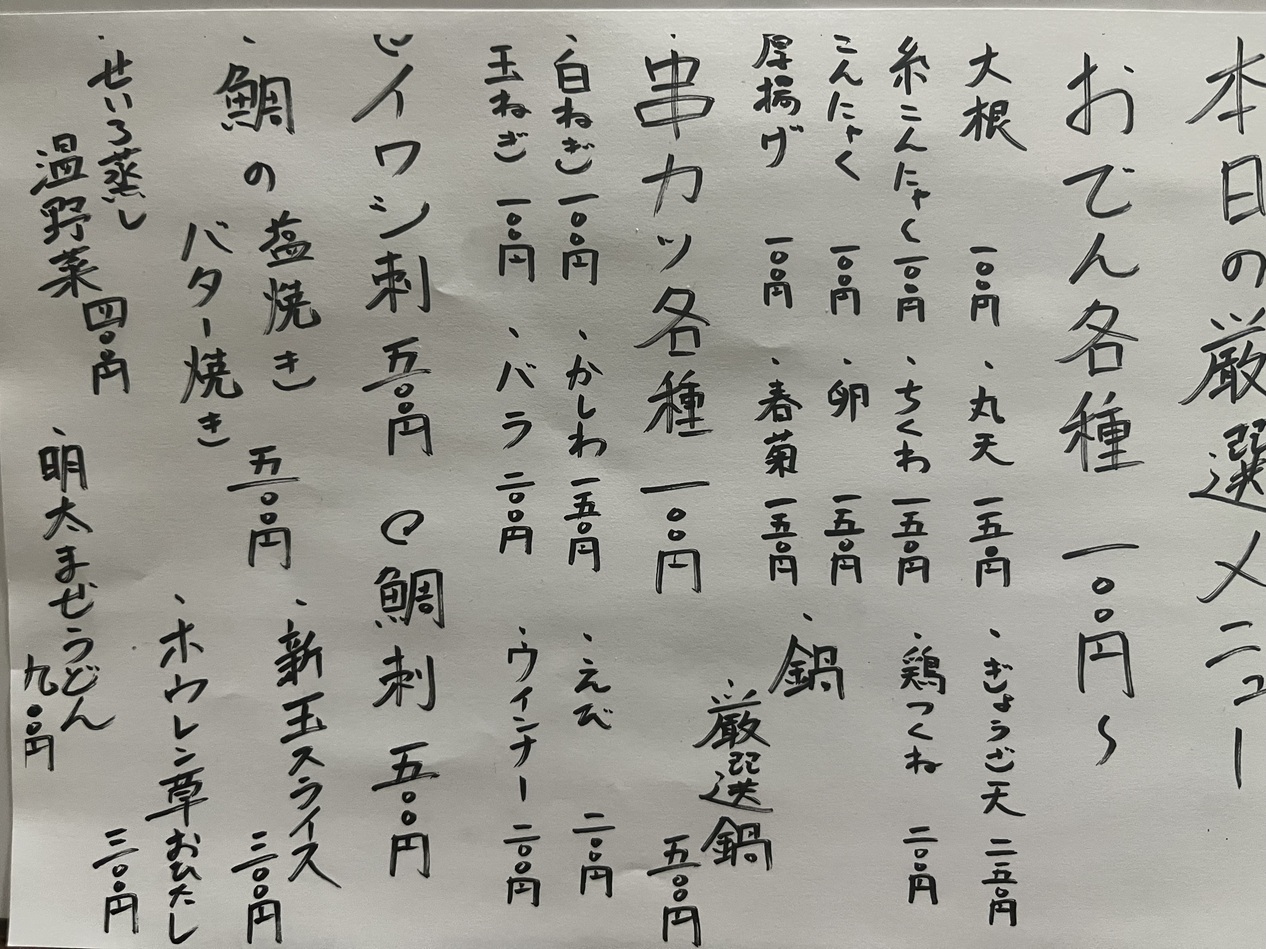 本日の厳選メニュー
おでん各種 一〇〇円〜
大根 一〇〇円
・丸天 一五〇円
・ぎょうざ天 二五〇円
糸こんにゃく 一〇〇円
・ちくわ 一五〇円
・鶏つくね 二〇〇円
こんにゃく 一〇〇円
・卵 一五〇円
厚揚げ 一〇〇円
・春菊 一五〇円
・鍋
・厳選鍋
五〇〇円
・串カツ各種 一〇〇円
・白ねぎ 一〇〇円
・かしわ 一五〇円
・えび 二〇〇円
玉ねぎ 一〇〇円
・バラ 二〇〇円
・ウインナー 二〇〇円
イワシ刺 五〇〇円
鯛刺 五〇〇円
・鯛の塩焼き
バター焼き
五〇〇円
・新玉スライス
三〇〇円
・ホウレン草おひたし
三〇〇円
・せいろ蒸し
温野菜 四〇〇円
・明太まぜうどん
九〇〇円